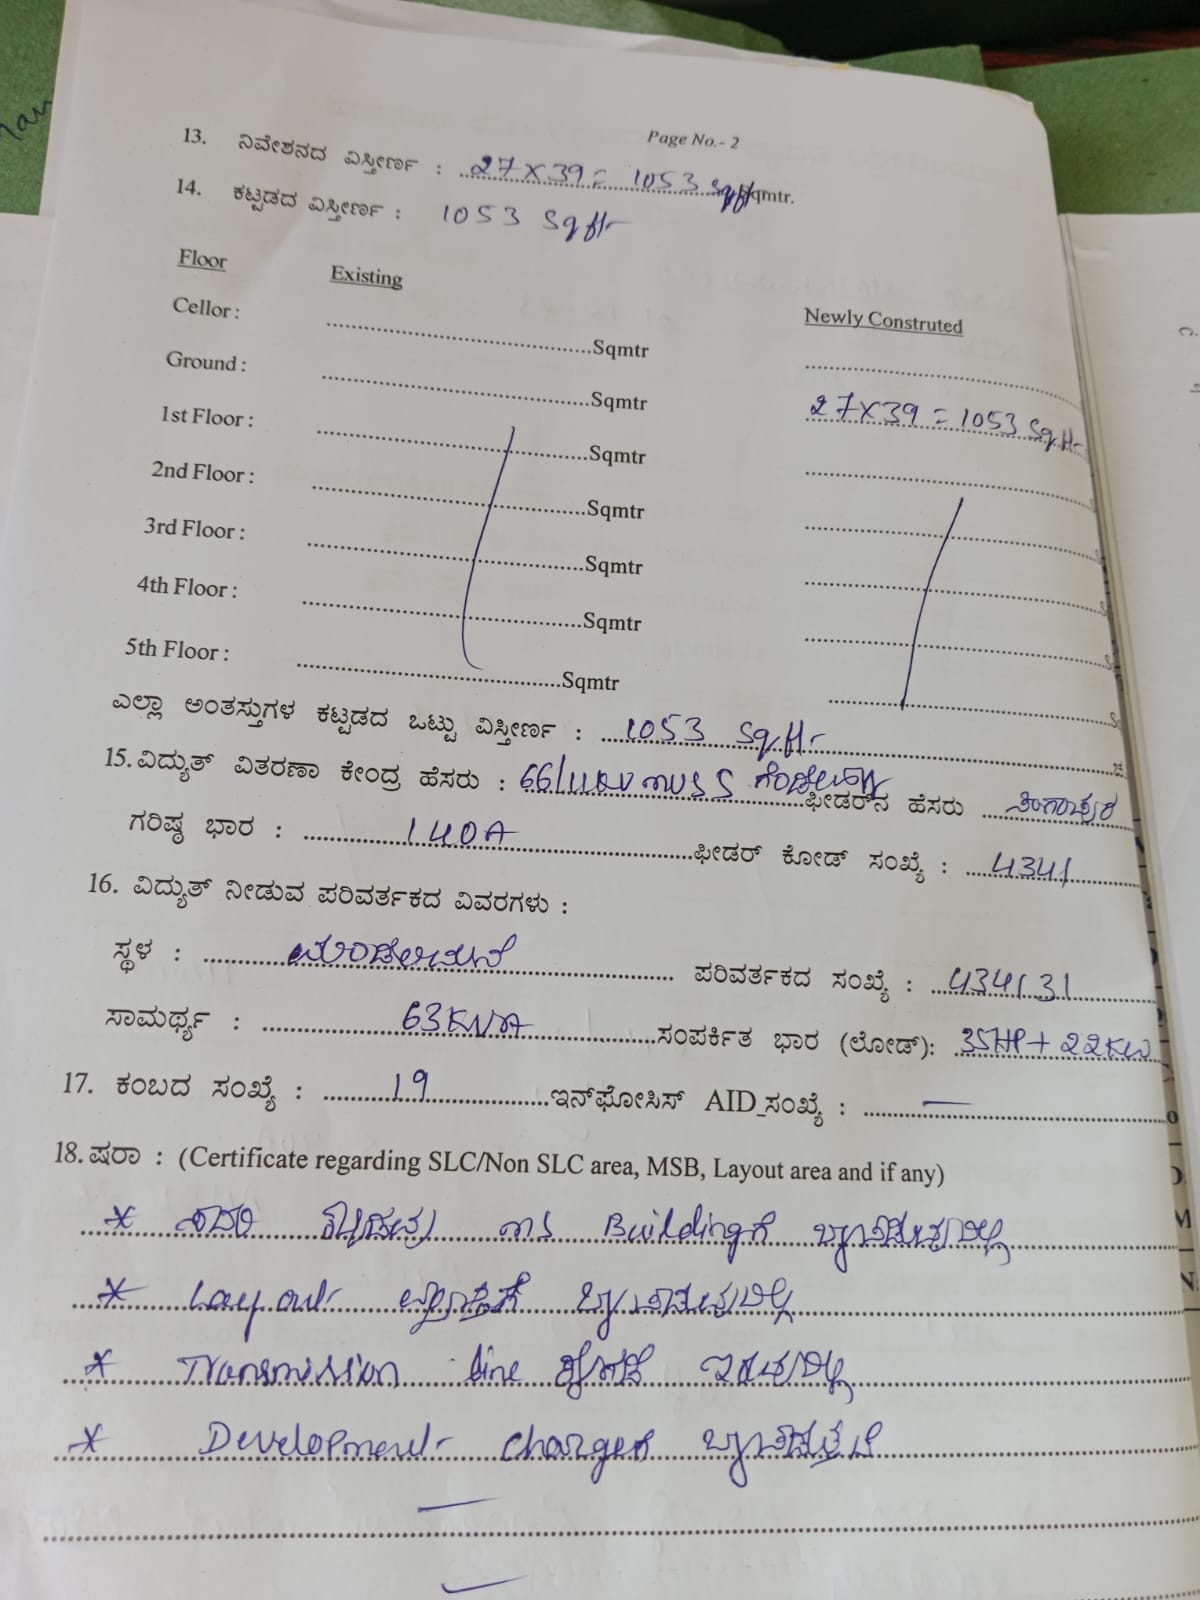 Page No.- 2
13. ನಿವೇಶನದ ವಿಸ್ತೀರ್ಣ : 27 X 39 = 1053 Sqft Sqmtr.
14. ಕಟ್ಟಡದ ವಿಸ್ತೀರ್ಣ : 1053 Sqft
Floor Existing Newly Construted
Cellor : Sqmtr
Ground : Sqmtr 27X39 = 1053 Sqft
1st Floor : Sqmtr
2nd Floor : Sqmtr
3rd Floor : Sqmtr
4th Floor : Sqmtr
5th Floor : Sqmtr
ಎಲ್ಲಾ ಅಂತಸ್ತುಗಳ ಕಟ್ಟಡದ ಒಟ್ಟು ವಿಸ್ತೀರ್ಣ : 1053 Sqft
15. ವಿದ್ಯುತ್ ವಿತರಣಾ ಕೇಂದ್ರ ಹೆಸರು : 66/11KV MUSS ಫೀಡರ್‌ನ ಹೆಸರು
ಗರಿಷ್ಠ ಭಾರ : 140A ಫೀಡರ್ ಕೋಡ್ ಸಂಖ್ಯೆ : 4341
16. ವಿದ್ಯುತ್ ನೀಡುವ ಪರಿವರ್ತಕದ ವಿವರಗಳು :
ಸ್ಥಳ : ಪರಿವರ್ತಕದ ಸಂಖ್ಯೆ :
ಸಾಮರ್ಥ್ಯ : 63KVA ಸಂಪರ್ಕಿತ ಭಾರ (ಲೋಡ್): 35HP + 22KW
17. ಕಂಬದ ಸಂಖ್ಯೆ : 19 ಇನ್‌ಫೋಸಿಸ್ AID_ಸಂಖ್ಯೆ : —
18. ಷರಾ : (Certificate regarding SLC/Non SLC area, MSB, Layout area and if any)
* ಸದರಿ ಕಟ್ಟಡವು MS Buildingಗೆ ಒಳಪಡುವುದಿಲ್ಲ
* Layout ವ್ಯಾಪ್ತಿಗೆ ಒಳಪಡುವುದಿಲ್ಲ
* Transmission line ಕೆಳಗಡೆ ಇರುವುದಿಲ್ಲ
* Development charges ಒಳಪಡುತ್ತದೆ